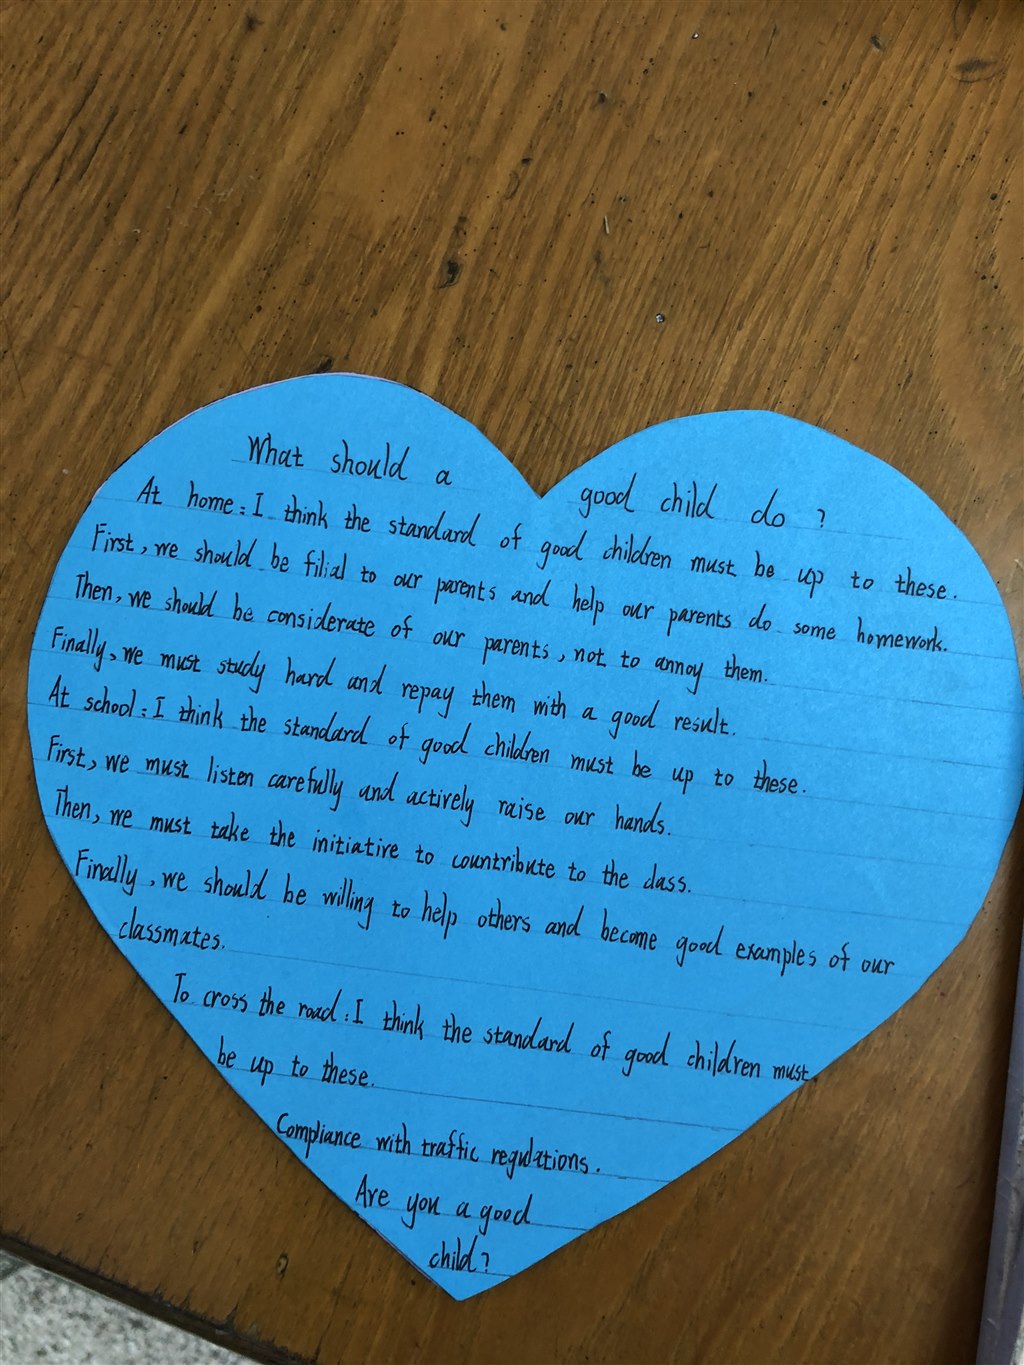 What should a good child do ?
At home : I think the standard of good children must be up to these .
First , we should be filial to our parents and help our parents do some homework.
Then, we should be considerate of our parents , not to annoy them.
Finally, we must study hard and repay them with a good result.
At school : I think the standard of good children must be up to these .
First, we must listen carefully and actively raise our hands.
Then, we must take the initiative to countribute to the class.
Finally , we should be willing to help others and become good examples of our
classmates.
To cross the road : I think the standard of good children must
be up to these.
Compliance with traffic regulations .
Are you a good
child ?